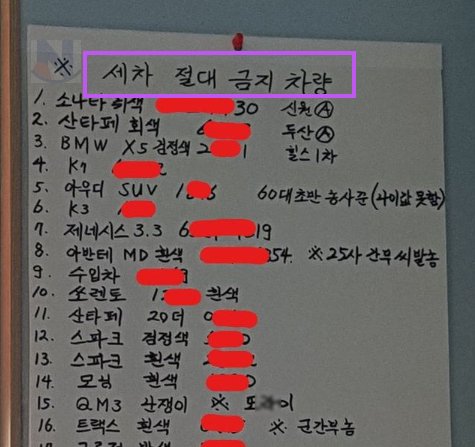 ※ 세차 절대 금지 차량
1. 소나타 회색 30 신원 Ⓐ
2. 산타페 회색 6 두산 Ⓐ
3. BMW X5 검정색 2 1 힐스 1차
4. K7 2
5. 아우디 SUV 1 6 60대초반 농사꾼 (나이값 못함)
6. K3 1
7. 제네시스 3.3 6 19
8. 아반테 MD 흰색 354 ※ 25사 간부 씨발놈
9. 수입차
10. 쏘렌토 12 흰색
11. 산타페 20더 0
12. 스파크 검정색
13. 스파크 흰색
14. 모닝 흰색
15. QM3 난쟁이 ※ 또 이
16. 트랙스 흰색 ※ 군간부놈